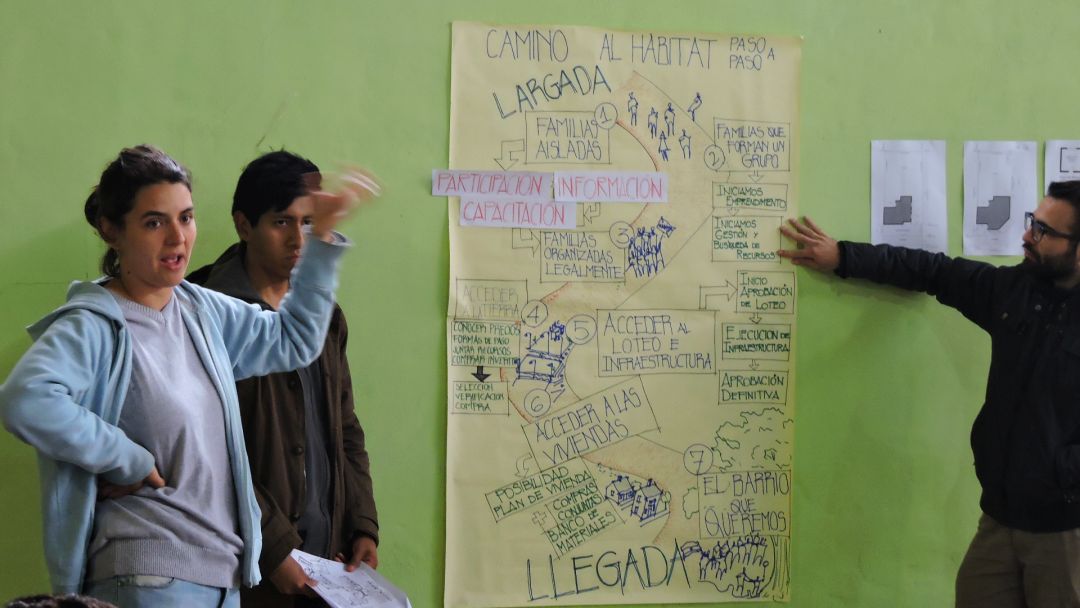 CAMINO AL HÁBITAT PASO A PASO
LARGADA
1
FAMILIAS
AISLADAS
2
FAMILIAS QUE
FORMAN UN
GRUPO
INICIAMOS
EMPRENDIMIENTO
INICIAMOS
GESTIÓN Y
BUSQUEDA DE
RECURSOS
PARTICIPACION
INFORMACIÓN
CAPACITACIÓN
3
FAMILIAS
ORGANIZADAS
LEGALMENTE
4
ACCEDER
A LA TIERRA
CONOCER PRECIOS
FORMAS DE PAGO
JUNTAR RECURSOS
COMPRAR
SELECCION
VERIFICACION
COMPRA
5
ACCEDER AL
LOTEO E
INFRAESTRUCTURA
INICIO
APROBACIÓN
DE LOTEO
EJECUCION DE
INFRAESTRUCTURA
APROBACIÓN
DEFINITIVA
6
ACCEDER A LAS
VIVIENDAS
POSIBILIDAD
PLAN DE VIVIENDA
COMPRAS
CONJUNTAS
BANCO DE
MATERIALES
7
EL BARRIO
QUE
QUEREMOS
LLEGADA